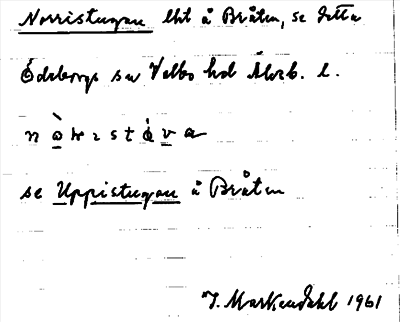 Norristugan lht å Bråten, se detta
Ödeborgs sn Valbo hd Älvsb. l.
se Uppistugan å Bråten
J. Markendahl 1961